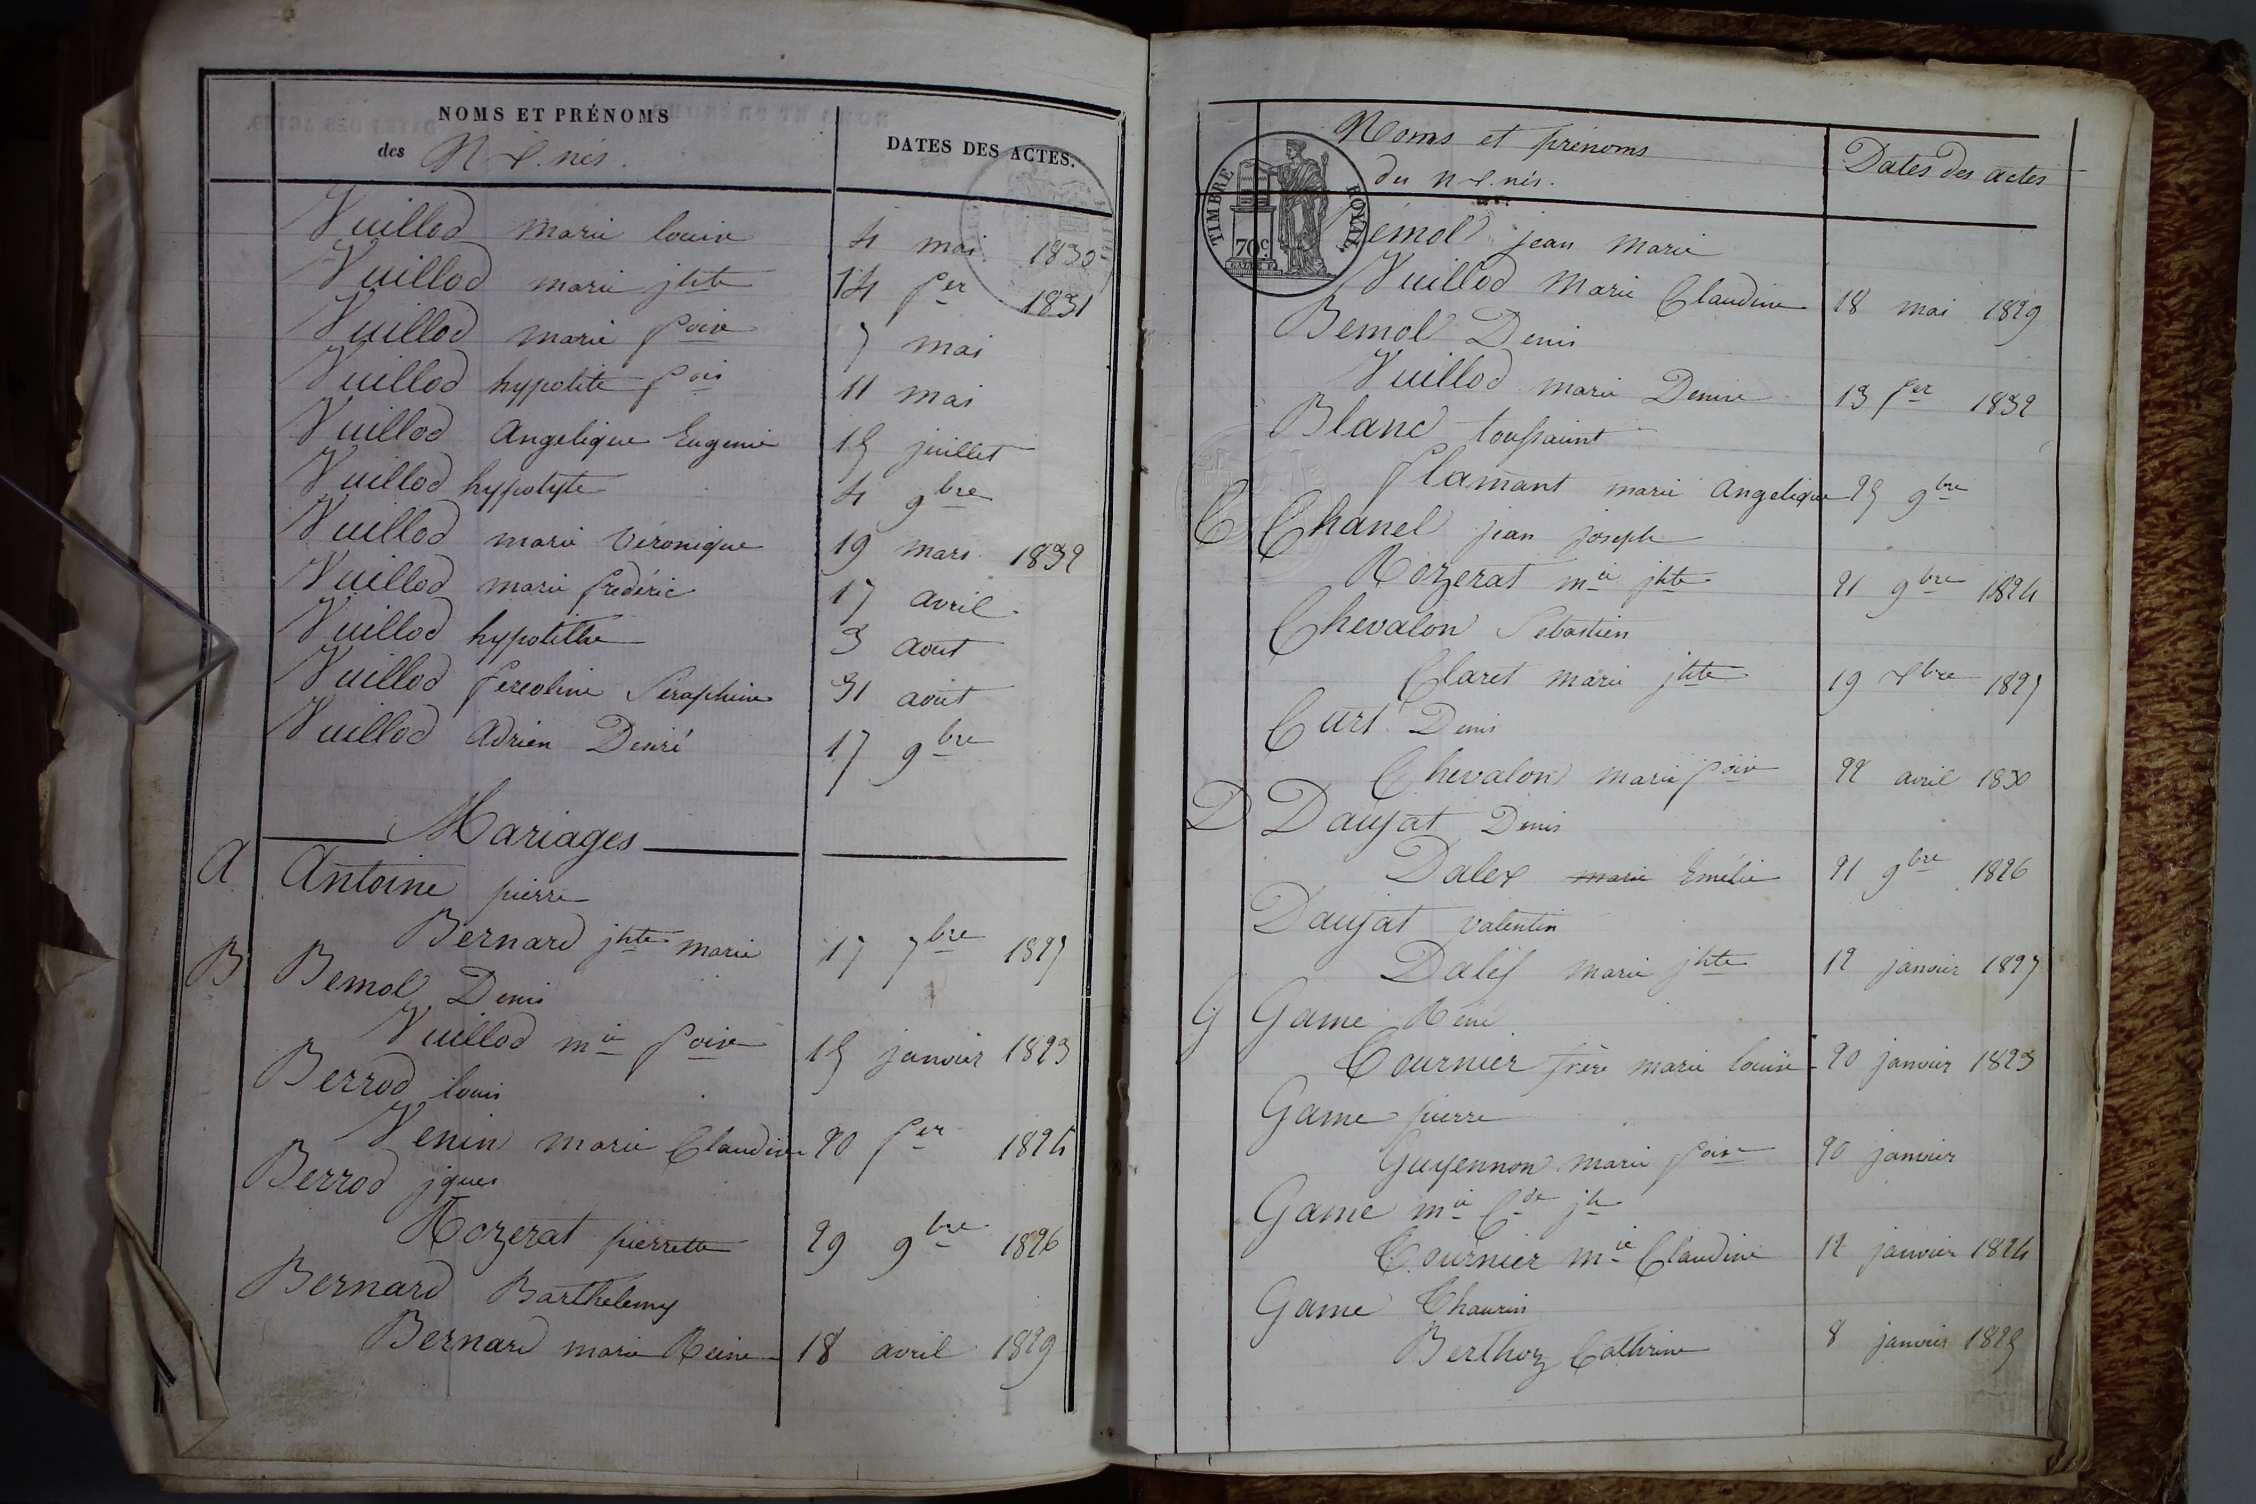 NOMS ET PRÉNOMS
des N X. nés.
DATES DES ACTES.
Vuillod marie louise 4 mai 1830
Vuillod marie jhte 14 fer 1831
Vuillod marie foise 7 mai
Vuillod hypolite fois 11 mai
Vuillod Angelique Eugenie 15 juillet
Vuillod hypolyte 4 9bre
Vuillod marie Véronique 19 mars 1832
Vuillod marie frédéric 17 avril
Vuillod hypolithe 3 aout
Vuillod fereoline Séraphine 31 août
Vuillod Adrien Désiré 17 9bre
Mariages
A Antoine pierre
Bernard jhte marie 17 7bre 1827
B Bemol Denis
Vuillod mie foise 15 janvier 1823
Berrod louis
Venin marie Claudine 20 fer 1824
Berrod jques
Rozerat pierrette 29 9bre 1826
Bernard Barthelemy
Bernard marie Reine 18 avril 1829
Noms et prénoms
des n X. nés.
Dates des actes
TIMBRE ROYAL
70c.
Bémol jean marie
Vuillod Marie Claudine 18 mai 1829
Bemol Denis
Vuillod marie Denise 13 fer 1832
Blanc toussaint
flamant marie Angelique 25 9bre
C Chanel jean joseph
Rozerat mie jhte 21 9bre 1824
Chevalon Sebastien
Claret marie jhte 19 Xbre 1827
Curt Denis
Chevalon marie foise 22 avril 1830
D Daujat Denis
Dalex marie Emélie 21 9bre 1826
Daujat valentin
Daléx marie jhte 12 janvier 1827
G Game René
Tournier frère marie louise 20 janvier 1823
Game pierre
Guyennon marie foise 20 janvier
Game mie Cde jh
Tournier mie Claudine 12 janvier 1824
Game Thaurin
Berthoz Cathrine 8 janvier 1825